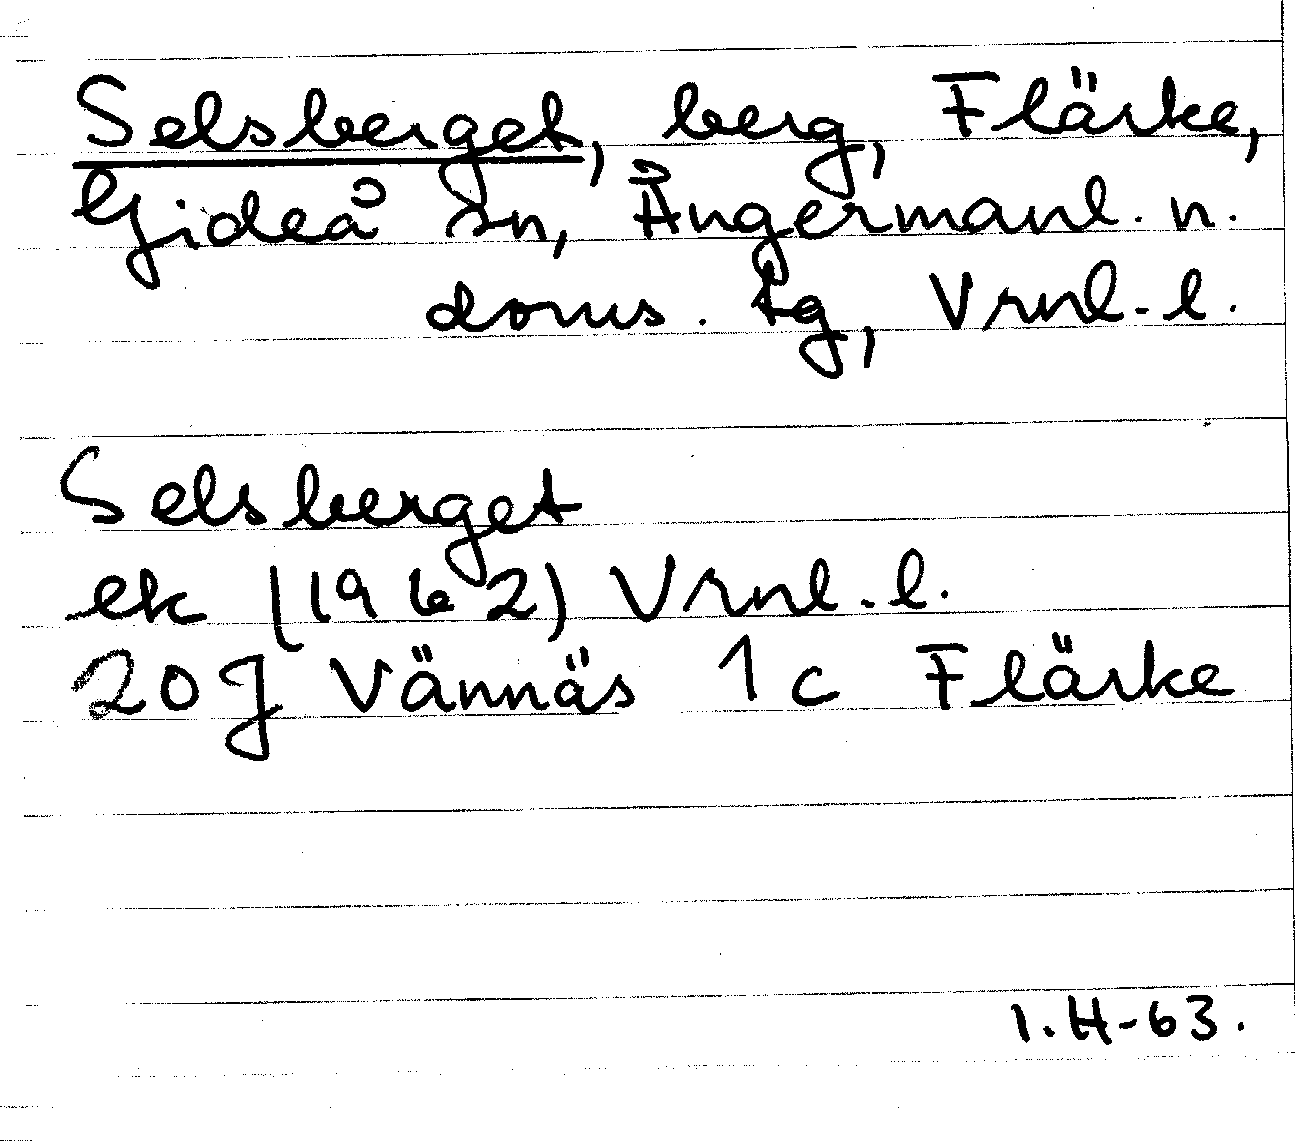 Selsberget, berg, Flärke,
Gideå sn, Ångermanl. n.
doms. tg, Vrnl.-l.
Selsberget
ek (1962) Vrnl.-l.
20J Vännäs 1c Flärke
I.H-63.